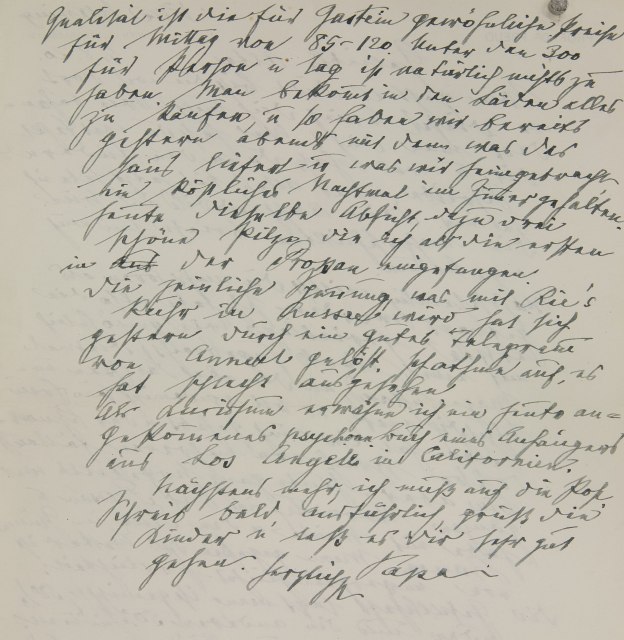 Qualität ist die für Gastein gewöhnliche Preise
für Mittag von 85–120 Unter den 300
für Person u Tag ist natürlich nichts zu
haben Man bekomt in den Läden alles
zu kaufen, u so haben wir bereits
gestern abends mit dem was das
Haus liefert u was wir heimgebracht
ein köstliches Nachtmal im Zimer gehalten.
Heute dieselbe Absicht, dazu drei
schöne Pilze die ich als die ersten
in aus der Prossau eingefangen.
Die peinliche Spannung was mit Rie's
Kur in Aussee wird hat sich
gestern durch ein gutes Telegram
von gelöst auf, es
hat schlecht ausgesehen
Als Curiosum erwähne ich ein heute an=
gekomenes psychoanbuch eines Anhängers
aus Los Angeles in Californien.
Nächstens mehr, ich muß auf die Post
Schreib bald, ausführlich, grüß die
Kinder u laß es Dir sehr gut
gehen. Herzlich Papa